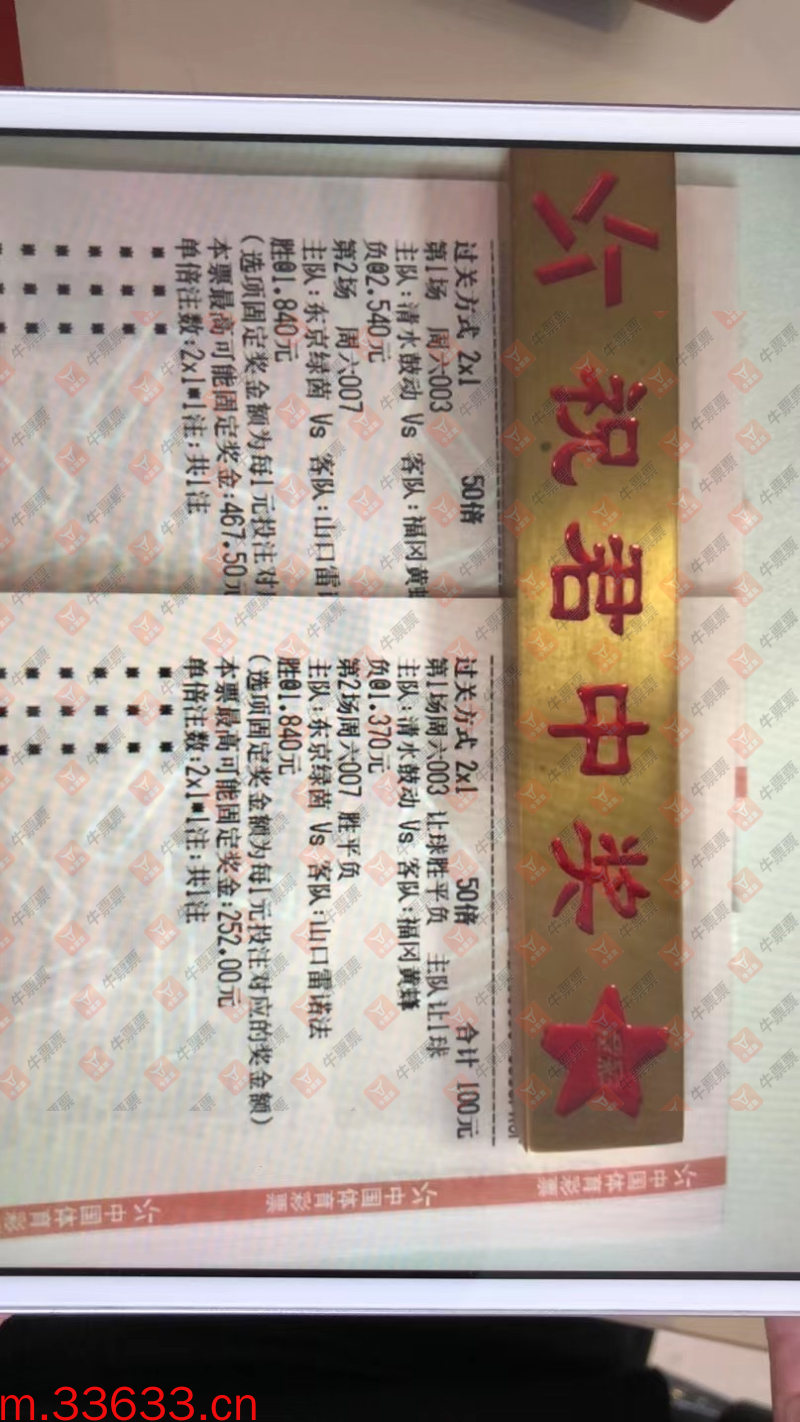 祝君中奖
过关方式 2x1 50倍
第1场 周六003
主队:清水鼓动 Vs 客队:福冈黄
负@2.540元
第2场 周六007
主队:东京绿茵 Vs 客队:山口雷
胜@1.840元
(选项固定奖金额为每1元投注对
本票最高可能固定奖金:467.50元
单倍注数:2x1*1注;共1注
过关方式 2x1 50倍 合计 100元
第1场周六003 让球胜平负 主队让1球
主队:清水鼓动 Vs 客队:福冈黄蜂
负@1.370元
第2场周六007 胜平负
主队:东京绿茵 Vs 客队:山口雷诺法
胜@1.840元
(选项固定奖金额为每1元投注对应的奖金额)
本票最高可能固定奖金:252.00元
单倍注数:2x1*1注;共1注
中国体育彩票
中国体育彩票
中国体育彩
牛票票
m.33633.cn